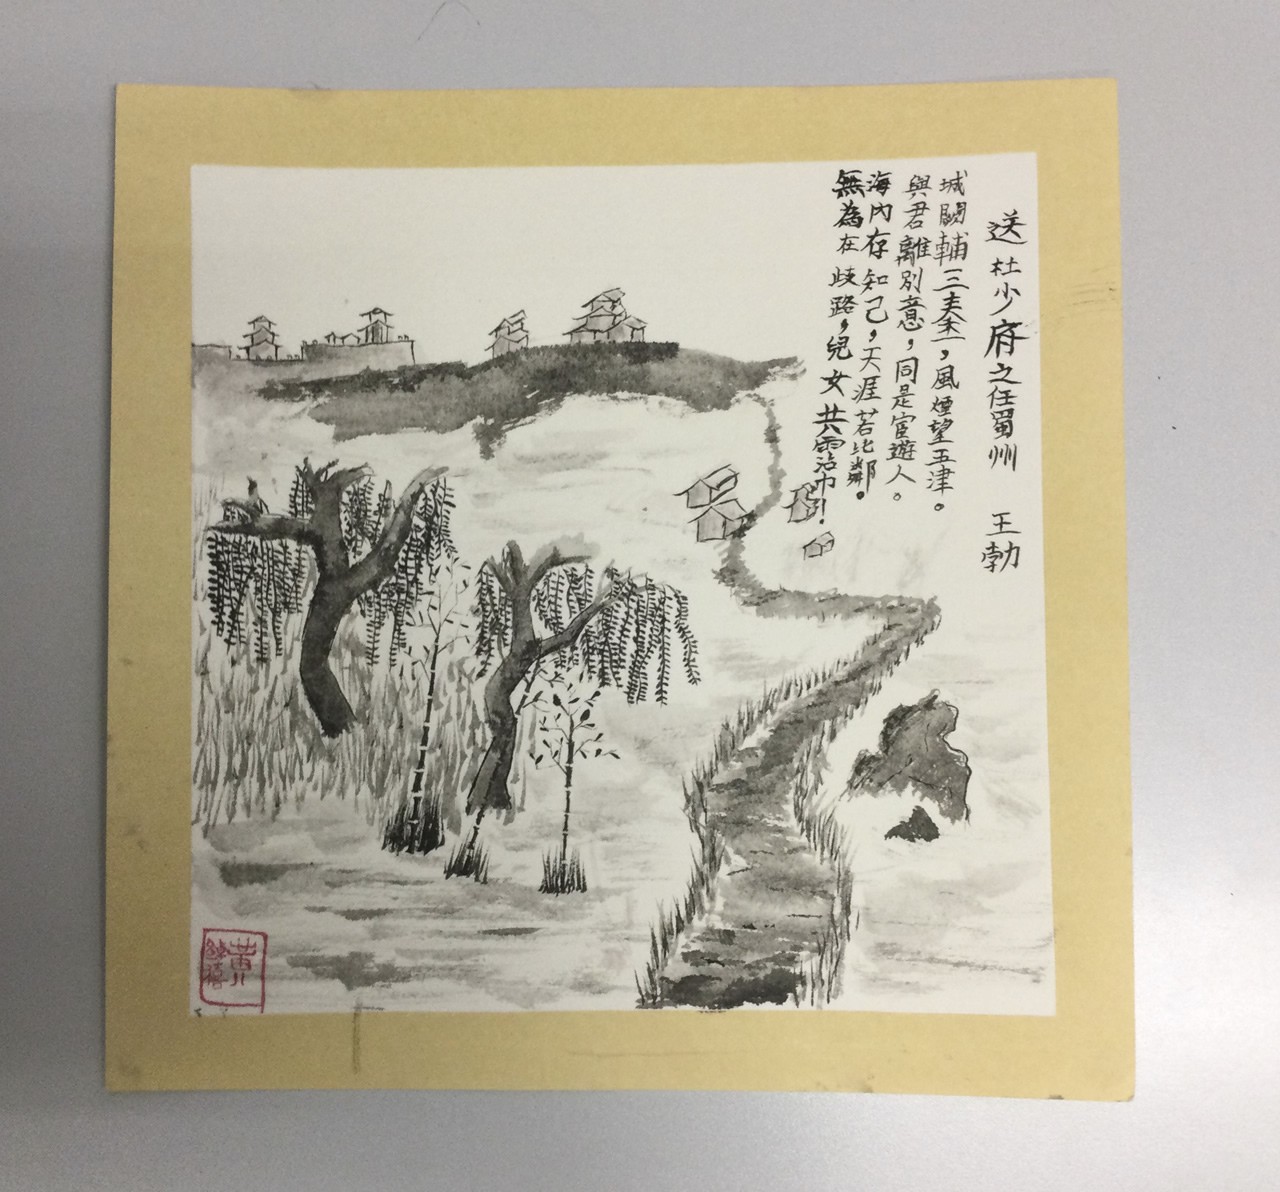 送杜少府之任蜀州　王勃
城闕輔三秦，風煙望五津。
與君離別意，同是宦遊人。
海內存知己，天涯若比鄰。
無為在歧路，兒女共霑巾！
黃